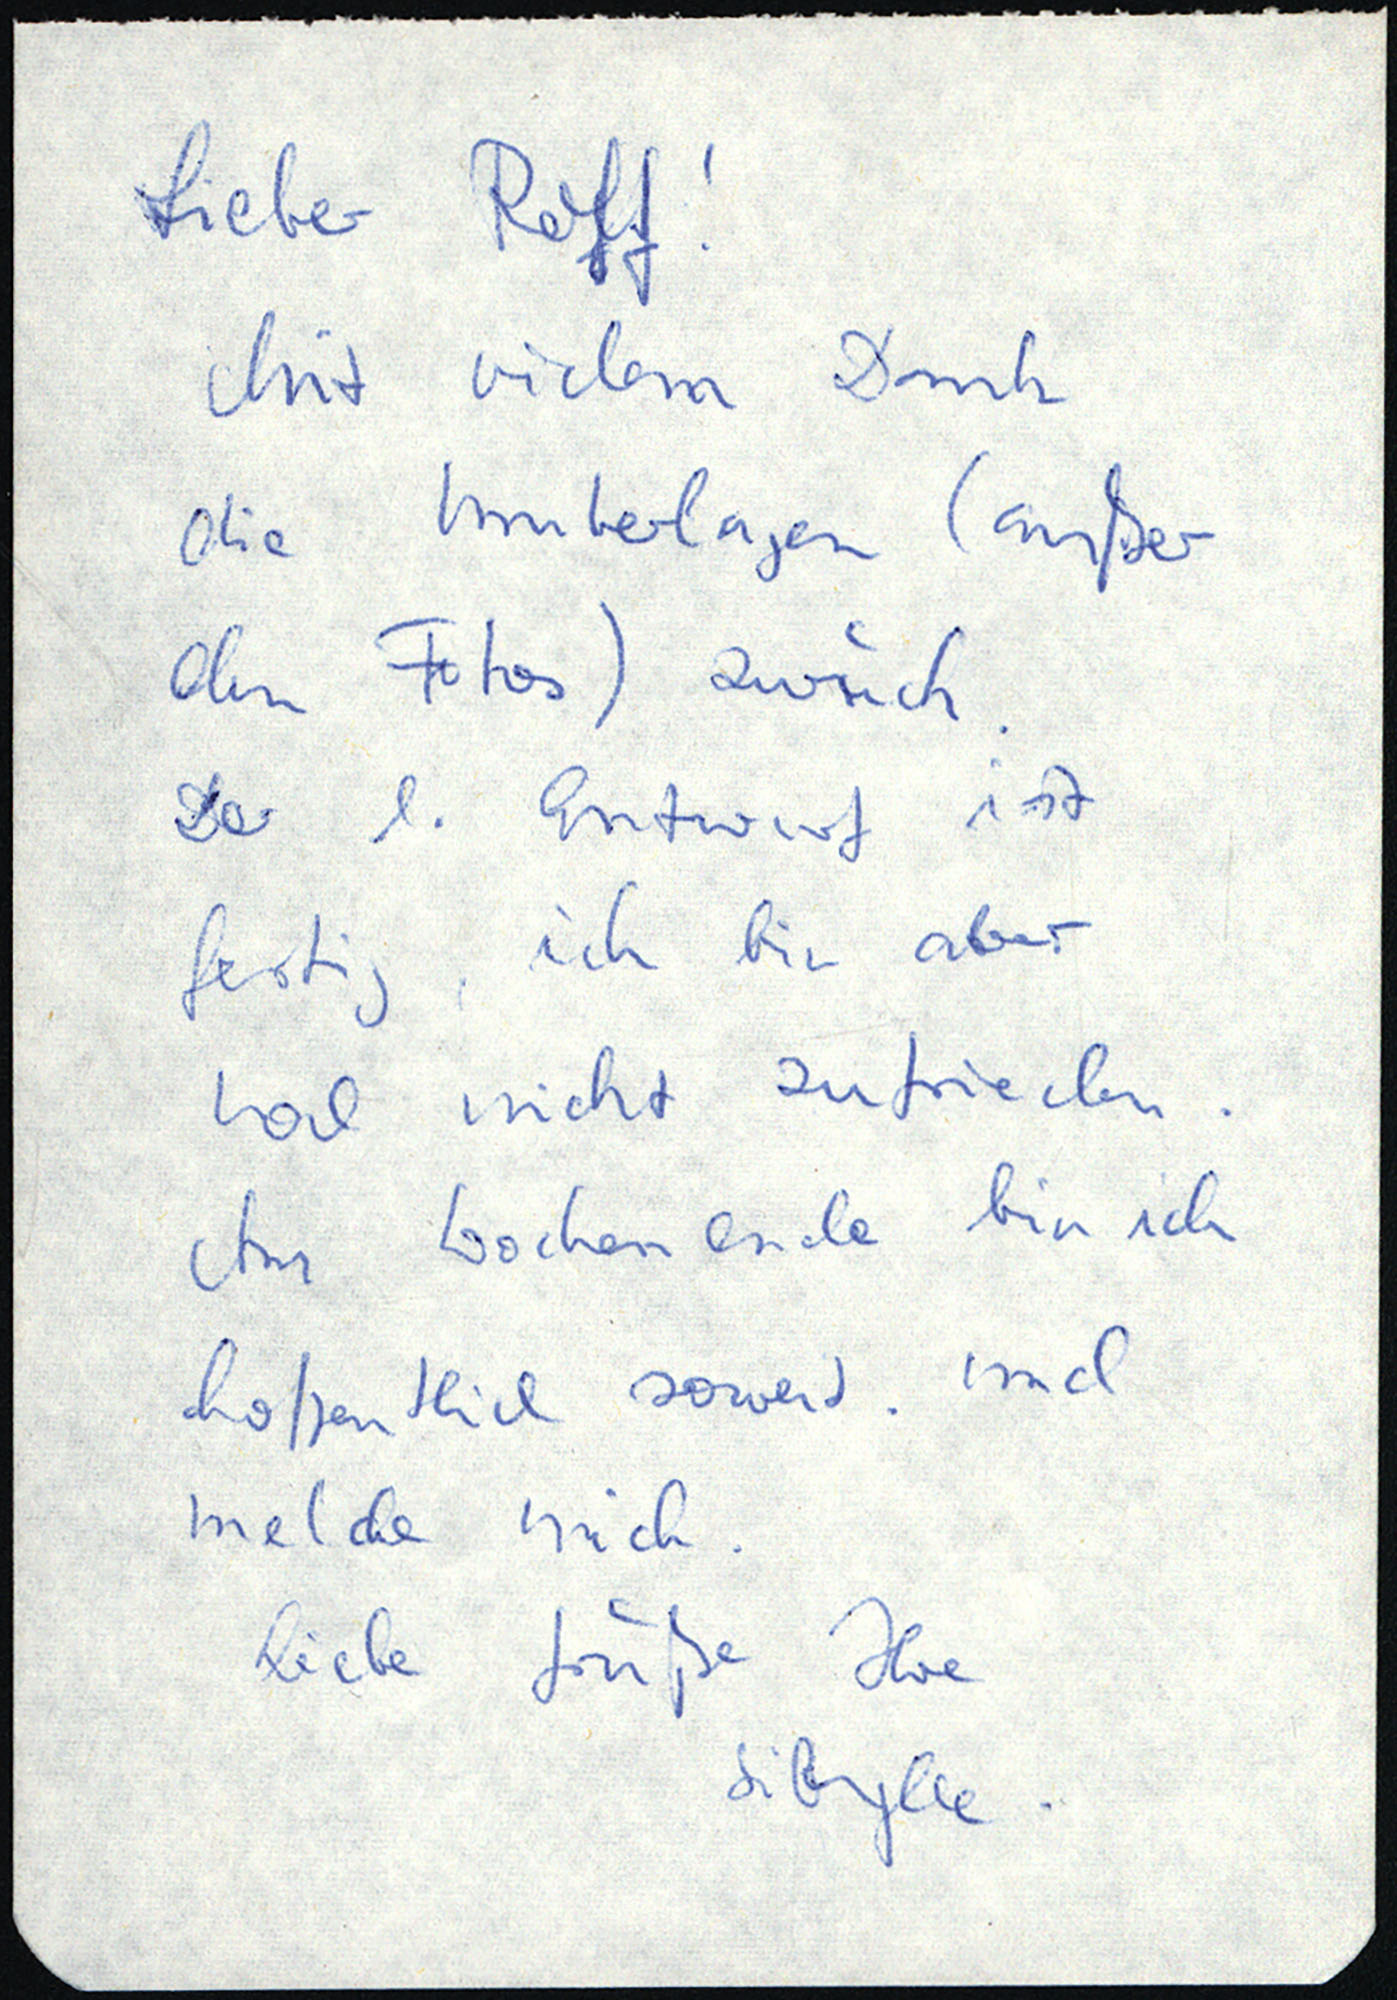 Lieber Rolf!
Mit vielem Dank
die Unterlagen (außer
den Fotos) zurück.
Der 1. Entwurf ist
fertig, ich bin aber
noch nicht zufrieden.
Am Wochenende bin ich
hoffentlich soweit. und
melde mich.
Liebe Grüße Ihre
Sibylle.